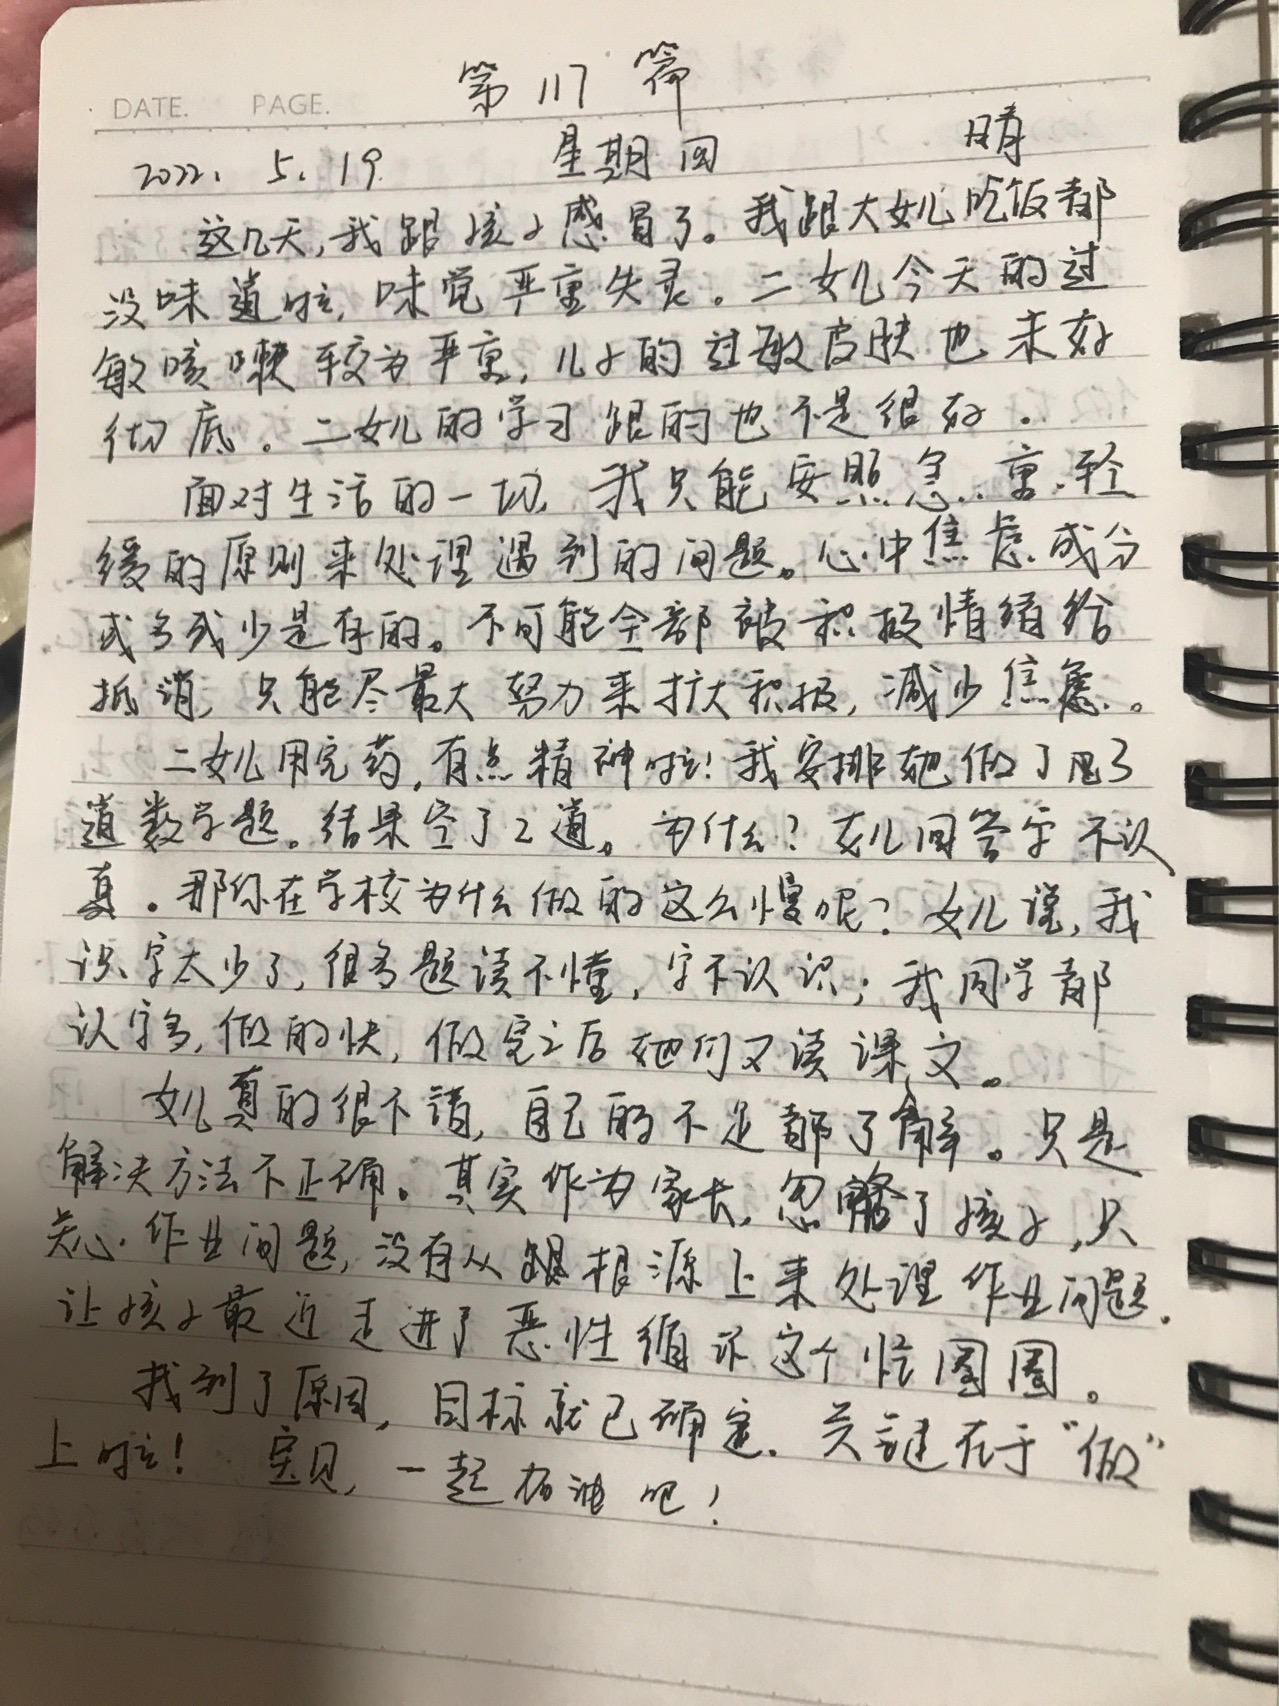 第117篇
DATE. PAGE.
2022. 5. 19 星期四 晴
这几天,我跟孩子感冒了。我跟大女儿吃饭都
没味道啦,味觉严重失灵。二女儿今天的过
敏咳嗽较为严重,儿子的过敏皮肤也未好
彻底。二女儿的学习跟的也不是很好.
面对生活的一切,我只能安照急.重.轻
缓的原则来处理遇到的问题。心中焦虑成分
或多或少是存的。不可能全部被积极情绪给
抵消,只能尽最大努力来扩大积极,减少焦虑。
二女儿用完药,有点精神啦!我安排她做了
道数学题。结果空了2道。为什么?女儿回答字不认
真。那你在学校为什么做的这么慢呢?女儿说,我
识字太少了,很多题读不懂,字不认识;我同学都
认字多,做的快,做完之后她们又读课文。
女儿真的很不错,自己的不足都了解。只是
解决方法不正确。其实作为家长,忽略了孩子,只
关心.作业问题,没有从根源上来处理作业问题.
让孩子最近走进了恶性循环这个怪圈圈。
找到了原因,目标就已确定.关键在于"做"
上啦!宝贝,一起加油吧!